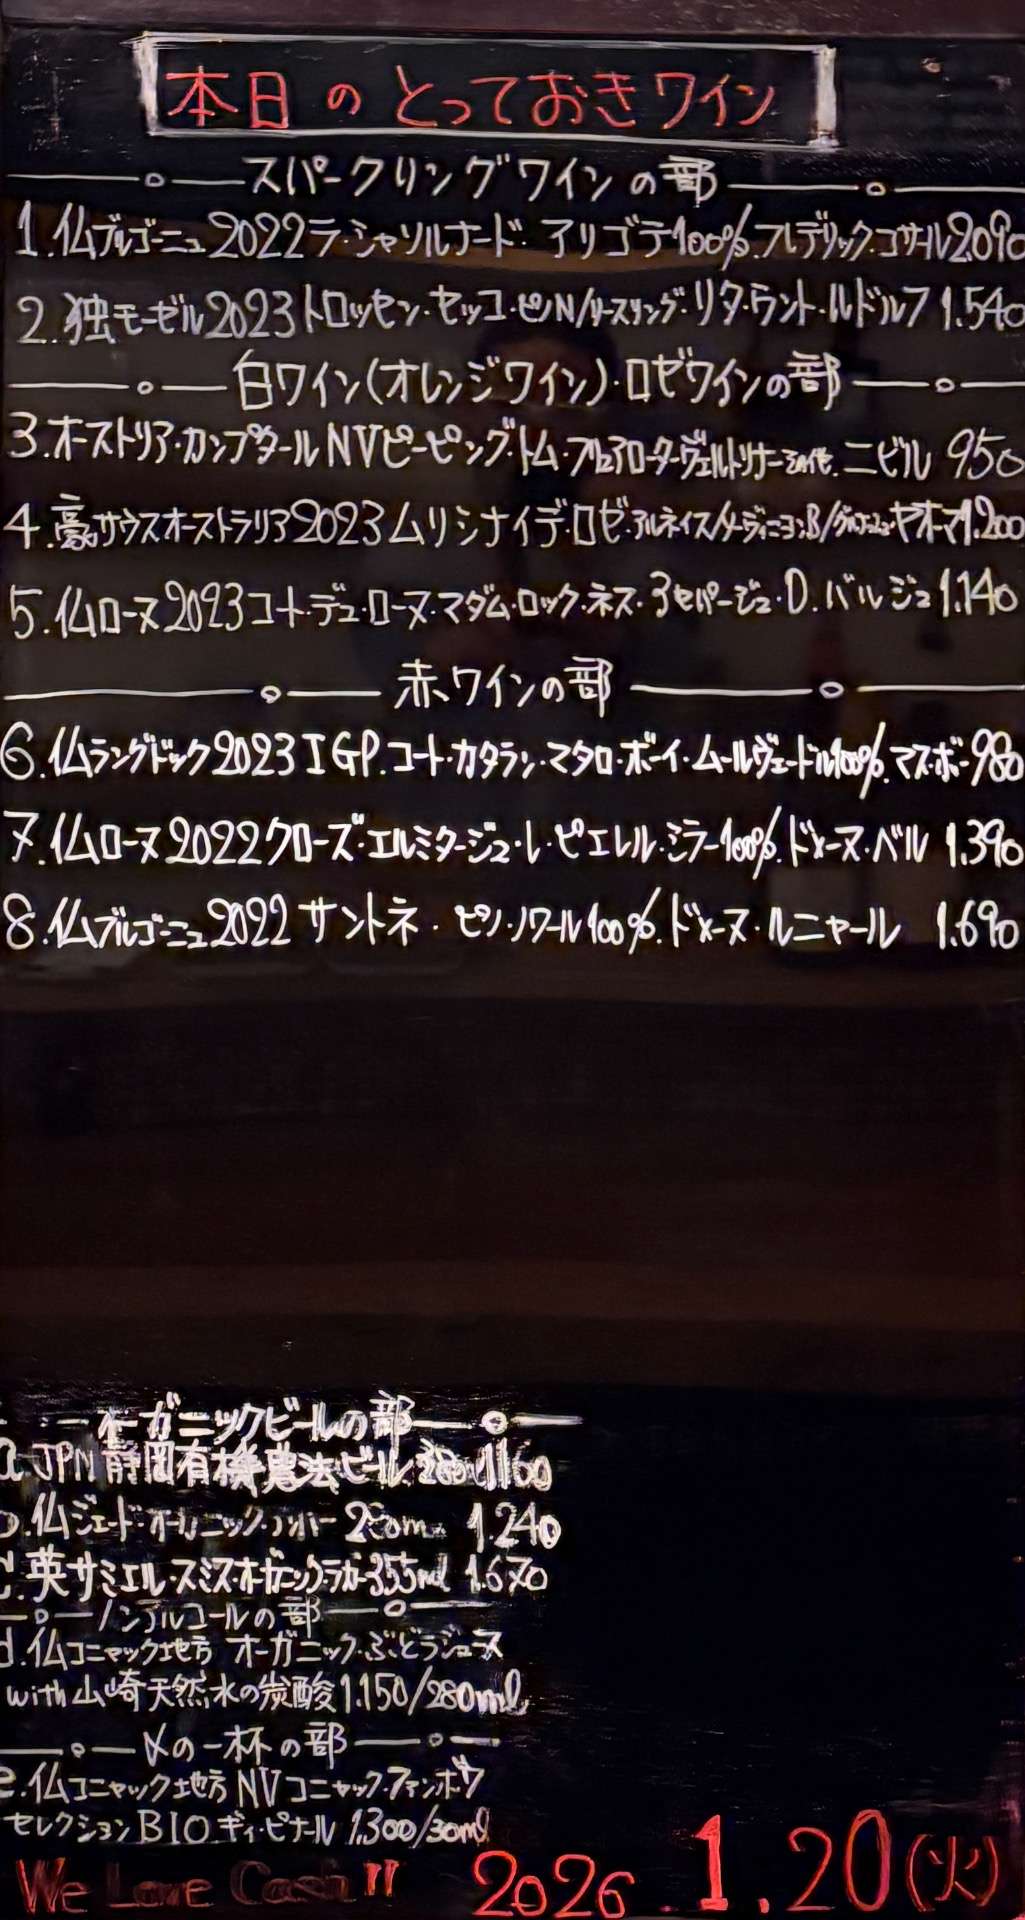 本日のとっておきワイン
スパークリングワインの部
1.仏ブルゴーニュ2022ラ・シャソルナード・アリゴテ100%.フレデリック・コサール2.090
2.独モーゼル2023トロッセン・セッコ・ピN/リースリング・リタ・ウント・ルドルフ 1.540
白ワイン(オレンジワイン)・ロゼワインの部
3.オーストリア・カンプタールNVピーピング・トム・フェルトリナー 他.ニビル 950
4.豪サウスオーストラリア2023ムリシナイデ・ロゼ・アルネイス/ ヤオマ1.200
5.仏ローヌ2023コート・デュ・ローヌ・マダム・ロック・ネス・3セパージュ・D.バルジュ1.140
赤ワインの部
6.仏ラングドック2023IGP.コート・カタラン・マタロ・ボーイ・ムールヴェードル100%.マス・ボー980
7.仏ローヌ2022クローズ・エルミタージュ・レ・ピエレル・シラー100%.ドメーヌ・ベル 1.390
8.仏ブルゴーニュ2022サントネ・ピノ・ノワール100%.ドメーヌ・ルニャール 1.690
オーガニックビールの部
a.JPN静岡有機農法ビール 1160
b.仏ジェード・オーガニック・アンバー 250ml 1.240
c.英サミエル・スミス・オーガニックラガー355ml 1.670
ノンアルコールの部
d.仏コニャック地方 オーガニック・ぶどうジュース
with山崎天然水の炭酸1.150/280ml
〆の一杯の部
e.仏コニャック地方NVコニャック・ファンボワ
セレクションBIOギィ・ピナール 1.300/30ml
We Love Cash!!
2026.1.20(火)